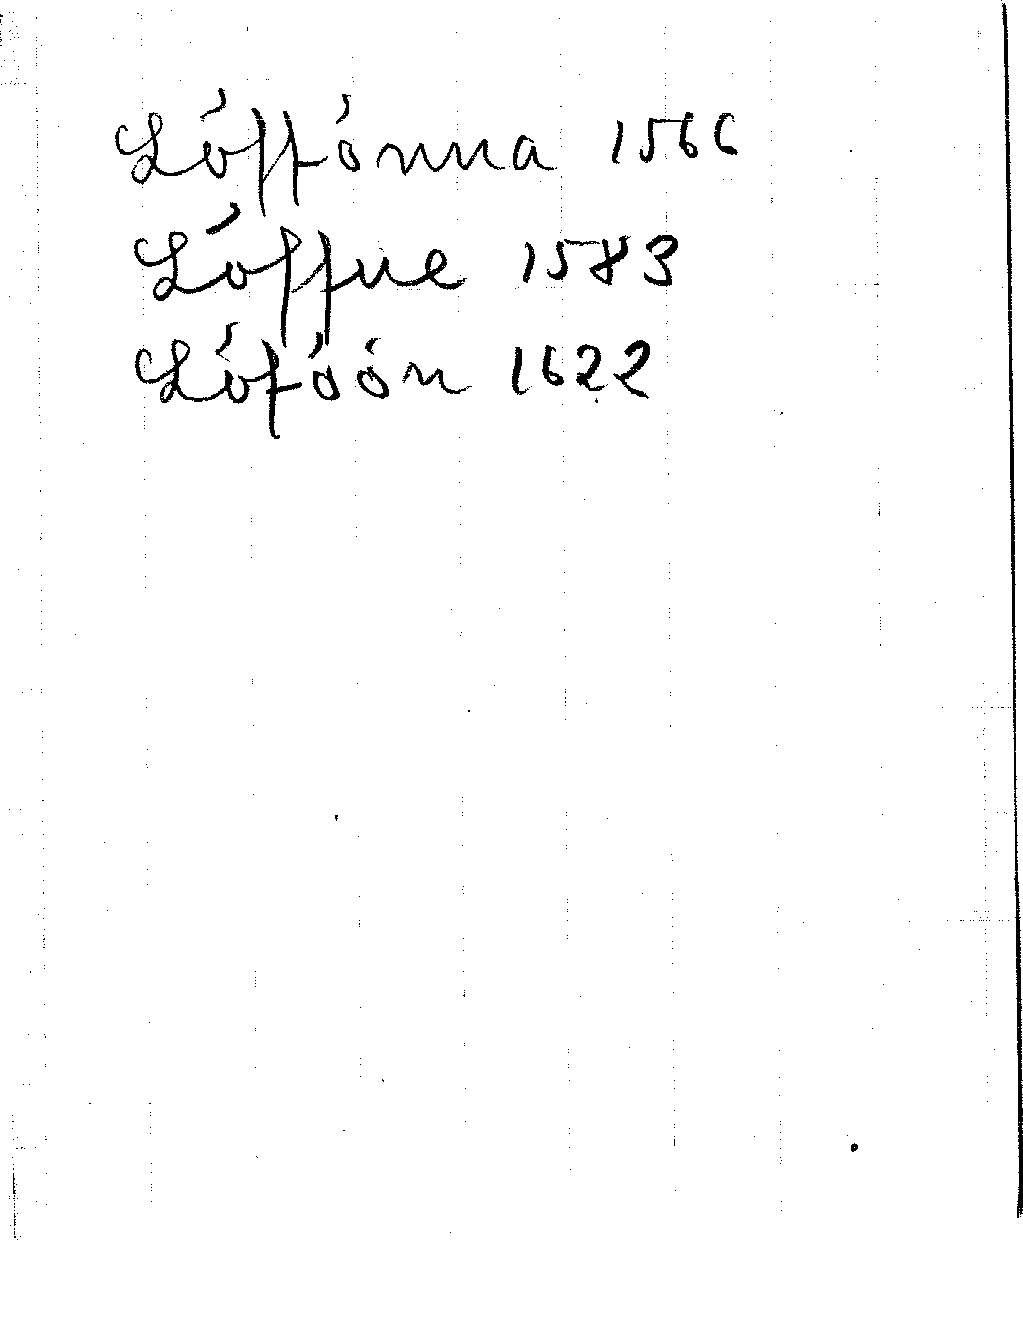 Lóffónna 1566
Lóffue 1583
Lófóón 1622